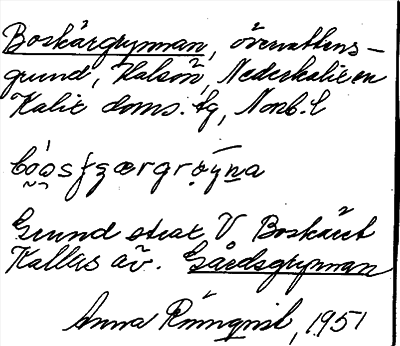 Boskärgrynnan, övervattens-
grund, Halsön, Nederkalix en
Kalix doms. tg, Norrb. l
Grund strax V Boskäret
Kallas äv. Gårdsgrynnan
Anna Rönnqvist, 1951